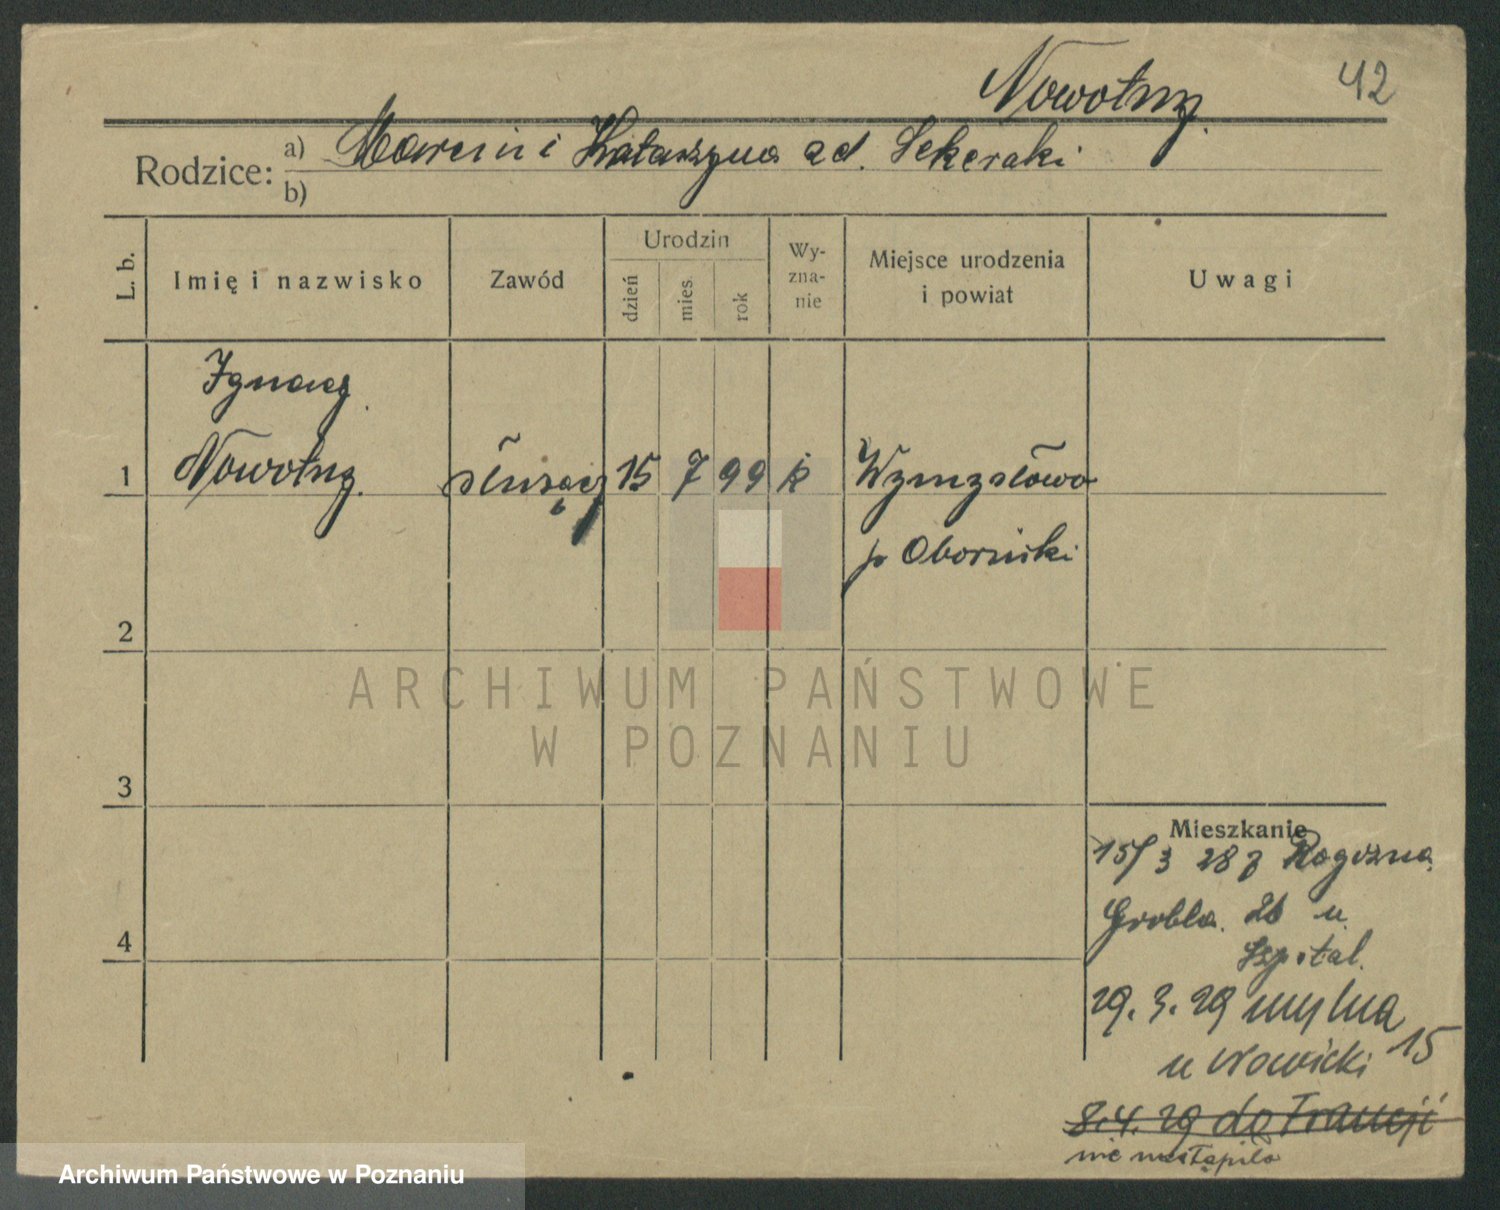 Nowotny
42
Rodzice: a) Marcin i Katarzyna zd. Sekeraki
b)
L. b. Imię i nazwisko Zawód Urodzin dzień mies. rok Wyznanie Miejsce urodzenia i powiat Uwagi
Ignacy
1 Nowotny. służący 15 7 99 k Wymysłowo
p Obornicki
2
3
4
Mieszkanie
15/3 28 z Rogoźna
Grobla. 26 u
Szpital.
29. 3. 29 Mylna 15
u Nowicki
8.4.29 do Francji
nie nastąpiło
ARCHIWUM PAŃSTWOWE
W POZNANIU
Archiwum Państwowe w Poznaniu